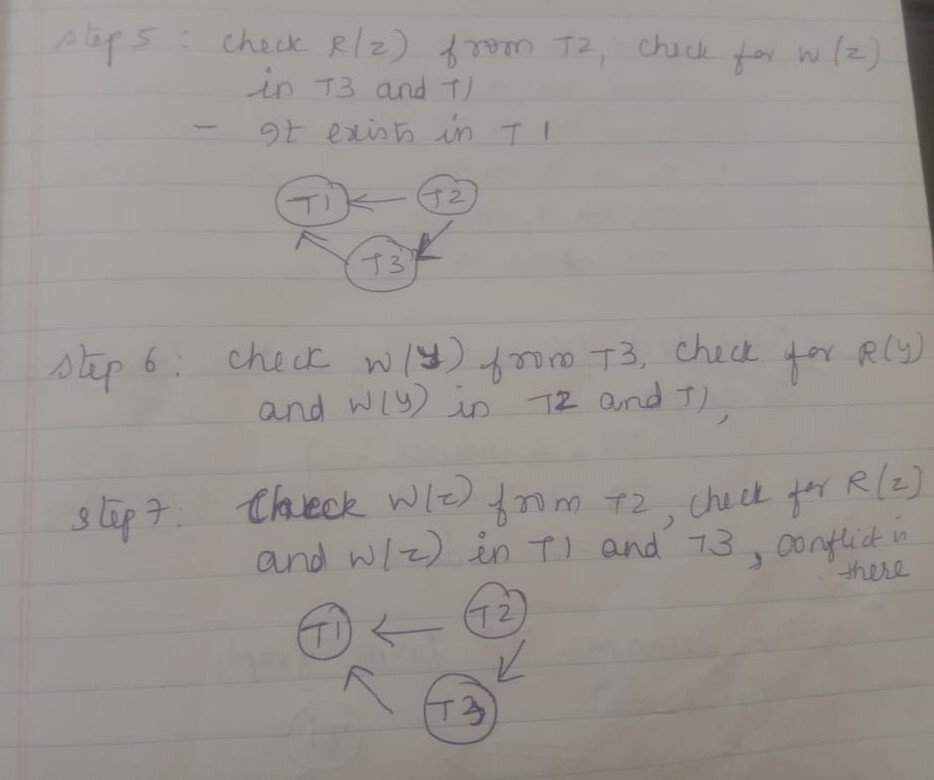 step 5 : check R(z) from T2, check for w(z)
in T3 and T1
- It exists in T1
T1 T2
T3
step 6 : check w(y) from T3, check for R(y)
and W(y) in T2 and T1,
step 7 : Check W(z) from T2, check for R(z)
and W(z) in T1 and T3, conflict is
there
T1 T2
T3